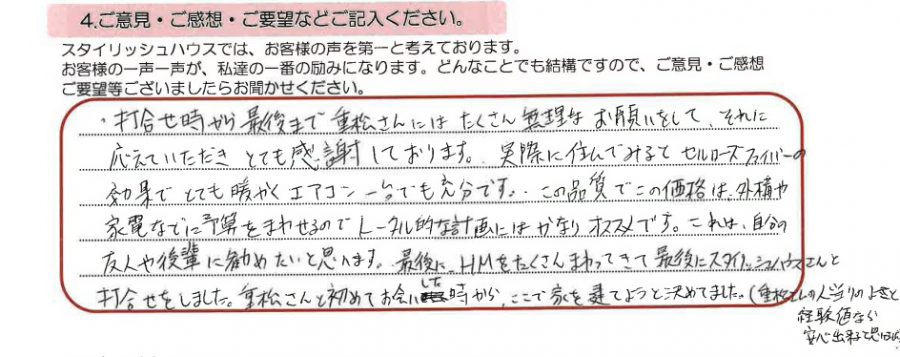 4.ご意見・ご感想・ご要望などご記入ください。
スタイリッシュハウスでは、お客様の声を第一と考えております。
お客様の一声一声が、私達の一番の励みになります。どんなことでも結構ですので、ご意見・ご感想
ご要望等ございましたらお聞かせください。
・打合せ時から最後まで重松さんにはたくさん無理なお願いをして、それに
応えていただきとても感謝しております。実際に住んでみるとセルローズファイバーの
効果でとても暖かくエアコン一台でも充分です。この品質でこの価格は、外構や
家電などに予算をまわせるのでトータル的な計画にはかなりオススメです。これは、自分の
友人や後輩に勧めたいと思います。最後に、HMをたくさんまわってきて最後にスタイリッシュハウスさんと
打合せをしました。重松さんと初めてお会いした時から、ここで家を建てようと決めてました。(重松さんの人当りのよさと
経験値なら
安心出来ると思い